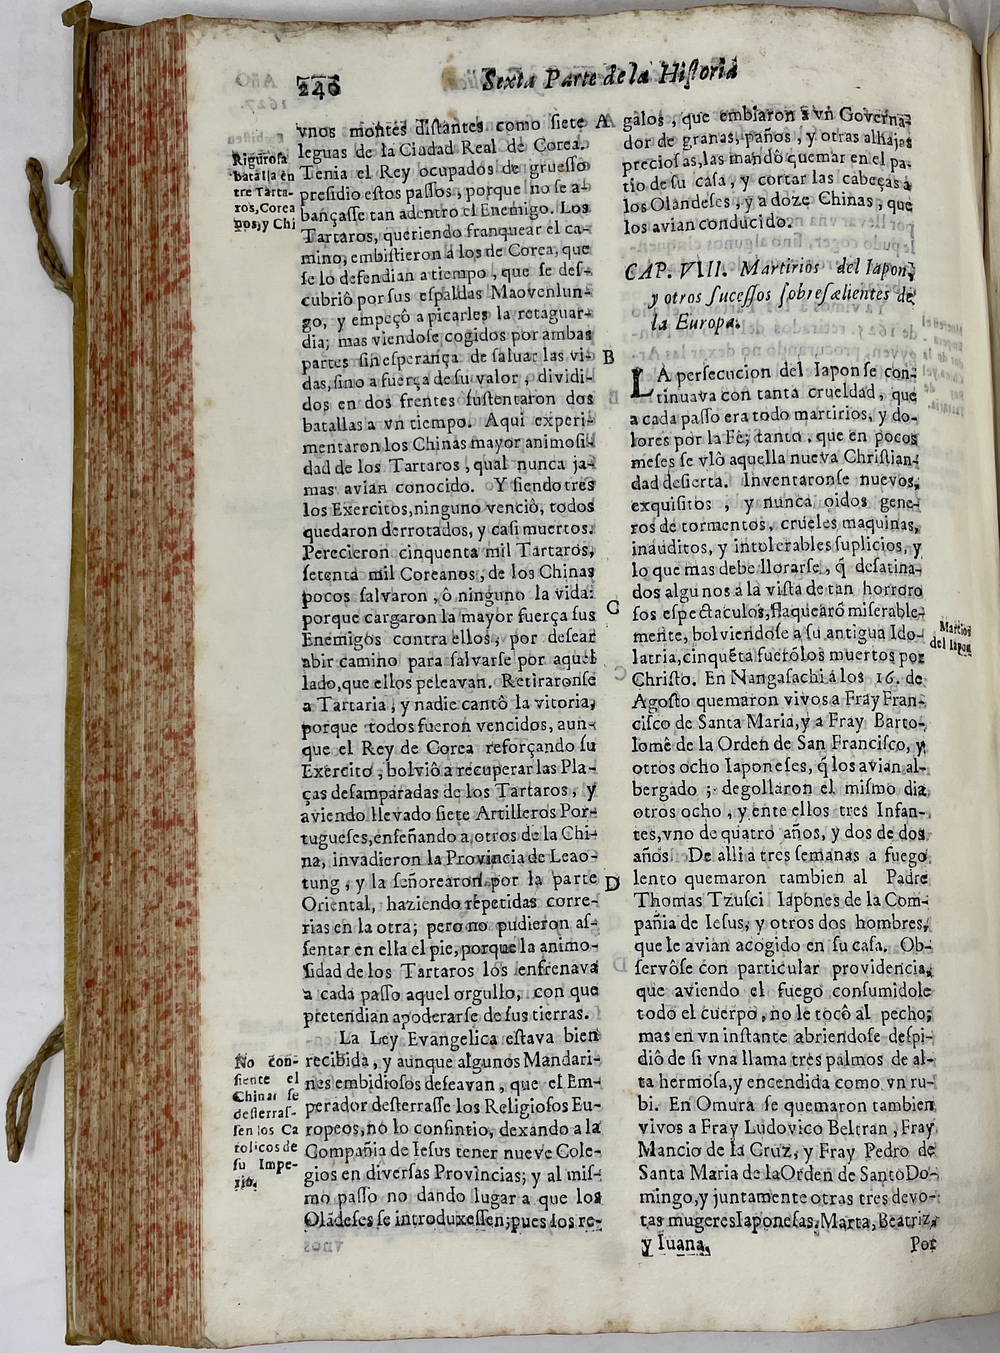 246
Sexta Parte de la Historia
vnos montes distantes como siete
leguas de la Ciudad Real de Corea.
Tenia el Rey ocupados de gruesso
presidio estos passos, porque no se a-
bançasse tan adentro el Enemigo. Los
Tartaros, queriendo franquear el ca-
mino, embistieron à los de Corea, que
se lo defendian a tiempo, que se des-
cubriò por sus espaldas Maovenlun-
go, y empeçò a picarles la retaguar-
dia; mas viendose cogidos por ambas
partes sin esperança de saluar las vi-
das, sino a fuerça de su valor, dividi-
dos en dos frentes sustentaron dos
batallas a vn tiempo. Aqui experi-
mentaron los Chinas mayor animosi-
dad de los Tartaros, qual nunca ja-
mas avian conocido. Y siendo tres
los Exercitos, ninguno venciò, todos
quedaron derrotados, y casi muertos.
Perecieron cinquenta mil Tartaros,
setenta mil Coreanos, de los Chinas
pocos salvaron, ò ninguno la vida:
porque cargaron la mayor fuerça sus
Enemigos contra ellos, por desear
abir camino para salvarse por aquel
lado, que ellos peleavan. Retiraronse
a Tartaria, y nadie cantò la vitoria,
porque todos fueron vencidos, aun-
que el Rey de Corea reforçando su
Exercito, bolviò a recuperar las Pla-
ças desamparadas de los Tartaros, y
aviendo llevado siete Artilleros Por-
tugueses, enseñando a otros de la Chi-
na, invadieron la Provincia de Leao-
tung, y la señorearon por la parte
Oriental, haziendo repetidas corre-
rias en la otra; pero no pudieron as-
sentar en ella el pie, porque la animo-
sidad de los Tartaros los enfrenava
a cada passo aquel orgullo, con que
pretendian apoderarse de sus tierras.
La Ley Evangelica estava bien
recibida, y aunque algunos Mandari-
nes embidiosos deseavan, que el Em-
perador desterrasse los Religiosos Eu-
ropeos, no lo consintio, dexando a la
Compañia de Iesus tener nueve Cole-
gios en diversas Provincias; y al mis-
mo passo no dando lugar a que los
Olādeses se introduxessen; pues los re-
Rigurosa
batalla en
tre Tarta-
ros, Corea
nos, y Chi
No con-
siente el
China se
desterras-
sen los Ca
tolicos de
su Impe-
rio.
A
B
C
D
galos, que embiaron à vn Governa-
dor de granas, paños, y otras alhajas
preciosas, las mandò quemar en el pa-
tio de su casa, y cortar las cabeças a
los Olandeses, y a doze Chinas, que
los avian conducido.
CAP. VIII. Martirios del Iapon,
y otros sucessos sobresaelientes de
la Europa.
LA persecucion del Iapon se con-
tinuava con tanta crueldad, que
a cada passo era todo martirios, y do-
lores por la Fè; tanto, que en pocos
meses se viò aquella nueva Christian-
dad desierta. Inventaronse nuevos,
exquisitos, y nunca oidos gene-
ros de tormentos, crueles maquinas,
inauditos, y intolerables suplicios, y
lo que mas debe llorarse, q̃ desatina-
dos algunos à la vista de tan horroro
sos espectaculos, flaquearō miserable-
mente, bolviendose a su antigua Ido-
latria, cinquēta fuerō los muertos por
Christo. En Nangasachi à los 16. de
Agosto quemaron vivos a Fray Fran-
cisco de Santa Maria, y a Fray Barto-
lomè de la Orden de San Francisco, y
otros ocho Iaponeses, q̃ los avian al-
bergado; degollaron el mismo dia
otros ocho, y ente ellos tres Infan-
tes, vno de quatro años, y dos de dos
años. De alli a tres semanas a fuego
lento quemaron tambien al Padre
Thomas Tzusci Iapones de la Com-
pañia de Iesus, y otros dos hombres,
que le avian acogido en su casa. Ob-
servòse con particular providencia,
que aviendo el fuego consumidole
todo el cuerpo, no le tocò al pecho;
mas en vn instante abriendose despi-
diò de si vna llama tres palmos de al-
ta hermosa, y encendida como vn ru-
bi. En Omura se quemaron tambien
vivos a Fray Ludovico Beltran, Fray
Mancio de la Cruz, y Fray Pedro de
Santa Maria de la Orden de Santo Do-
mingo, y juntamente otras tres devo-
tas mugeres Iaponesas, Marta, Beatriz,
y Iuana.
Por
Martirios
del Iapon